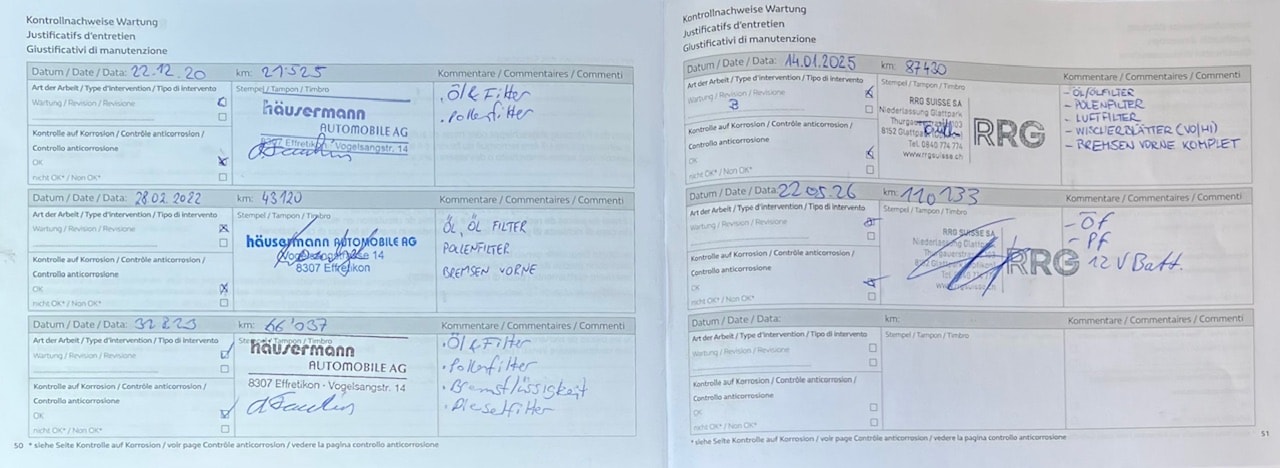 Kontrollnachweise Wartung
Justificatifs d'entretien
Giustificativi di manutenzione
Datum / Date / Data: 22.12.20 km: 21'525 Kommentare / Commentaires / Commenti
Art der Arbeit / Type d'intervention / Tipo di intervento
Stempel / Tampon / Timbro
Wartung / Revision / Revisione
häusermann
AUTOMOBILE AG
8307 Effretikon - Vogelsangstr. 14
. Öl & Filter
. Pollenfilter
Kontrolle auf Korrosion / Contrôle anticorrosion /
Controllo anticorrosione
OK
nicht OK* / Non OK*
Datum / Date / Data: 28.02.2022 km: 43120 Kommentare / Commentaires / Commenti
Art der Arbeit / Type d'intervention / Tipo di intervento
Stempel / Tampon / Timbro
Wartung / Revision / Revisione
häusermann AUTOMOBILE AG
Vogelsangstrasse 14
8307 Effretikon
ÖL, ÖL FILTER
POLLENFILTER
BREMSEN VORNE
Kontrolle auf Korrosion / Contrôle anticorrosion /
Controllo anticorrosione
OK
nicht OK* / Non OK*
Datum / Date / Data: km: 66'037 Kommentare / Commentaires / Commenti
Art der Arbeit / Type d'intervention / Tipo di intervento
Stempel / Tampon / Timbro
Wartung / Revision / Revisione
häusermann
AUTOMOBILE AG
8307 Effretikon - Vogelsangstr. 14
. Öl & Filter
. Pollenfilter
. Bremsflüssigkeit
. Dieselfilter
Kontrolle auf Korrosion / Contrôle anticorrosion /
Controllo anticorrosione
OK
nicht OK* / Non OK*
50 * siehe Seite Kontrolle auf Korrosion / voir page Contrôle anticorrosion / vedere la pagina controllo anticorrosione
Kontrollnachweise Wartung
Justificatifs d'entretien
Giustificativi di manutenzione
Datum / Date / Data: 14.01.2025 km: 87430 Kommentare / Commentaires / Commenti
Art der Arbeit / Type d'intervention / Tipo di intervento
Stempel / Tampon / Timbro
Wartung / Revision / Revisione
B
RRG SUISSE SA
Niederlassung Glattpark
8152 Glattpark
Tel. 0840 774 774
www.rrgsuisse.ch
RRG
- ÖL/ÖLFILTER
- POLENFILTER
- LUFTFILTER
- WISCHERBLÄTTER (VO/HI)
- BREMSEN VORNE KOMPLET
Kontrolle auf Korrosion / Contrôle anticorrosion /
Controllo anticorrosione
OK
nicht OK* / Non OK*
Datum / Date / Data: 22.05.26 km: 110 133 Kommentare / Commentaires / Commenti
Art der Arbeit / Type d'intervention / Tipo di intervento
Stempel / Tampon / Timbro
Wartung / Revision / Revisione
RRG SUISSE SA
RRG
- Öf
- Pf
12 V Batt.
Kontrolle auf Korrosion / Contrôle anticorrosion /
Controllo anticorrosione
OK
nicht OK* / Non OK*
Datum / Date / Data: km: Kommentare / Commentaires / Commenti
Art der Arbeit / Type d'intervention / Tipo di intervento
Stempel / Tampon / Timbro
Wartung / Revision / Revisione
Kontrolle auf Korrosion / Contrôle anticorrosion /
Controllo anticorrosione
OK
nicht OK* / Non OK*
* siehe Seite Kontrolle auf Korrosion / voir page Contrôle anticorrosion / vedere la pagina controllo anticorrosione 51